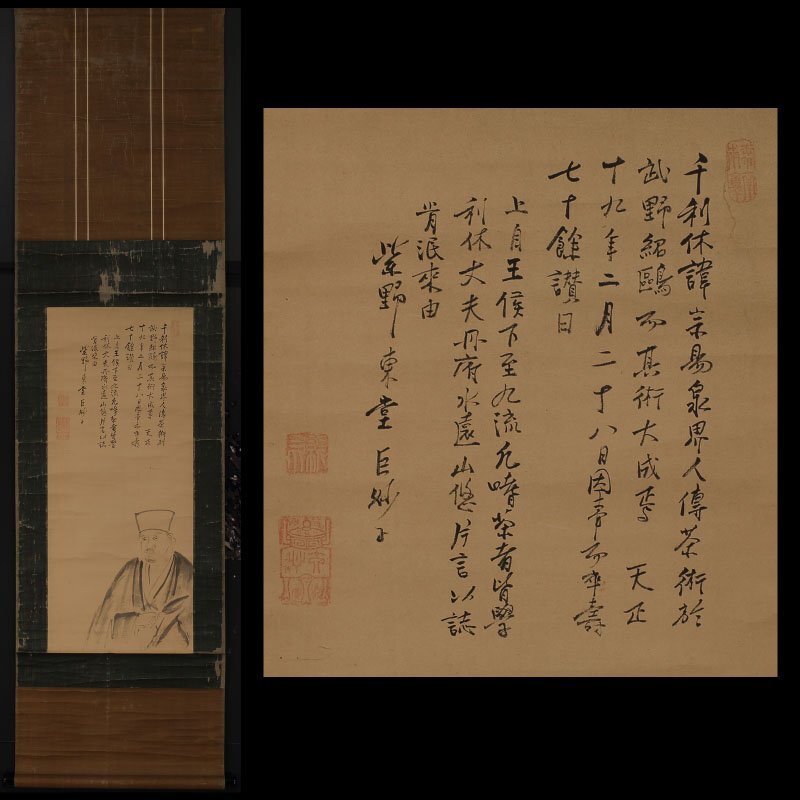 千利休諱宗易泉界人傳茶術於
武野紹鷗而其術大成焉 天正
十九年二月二十八日因事而卒壽
七十餘讃曰
上自王侯下至九流凡嗜茶者皆學
利休丈夫丹府水遠山悠片言以誌
肯泯來由
紫野東堂巨妙子